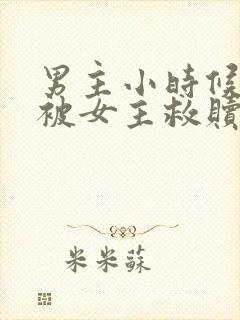 男主小時候
被女主救贖
米米蘇